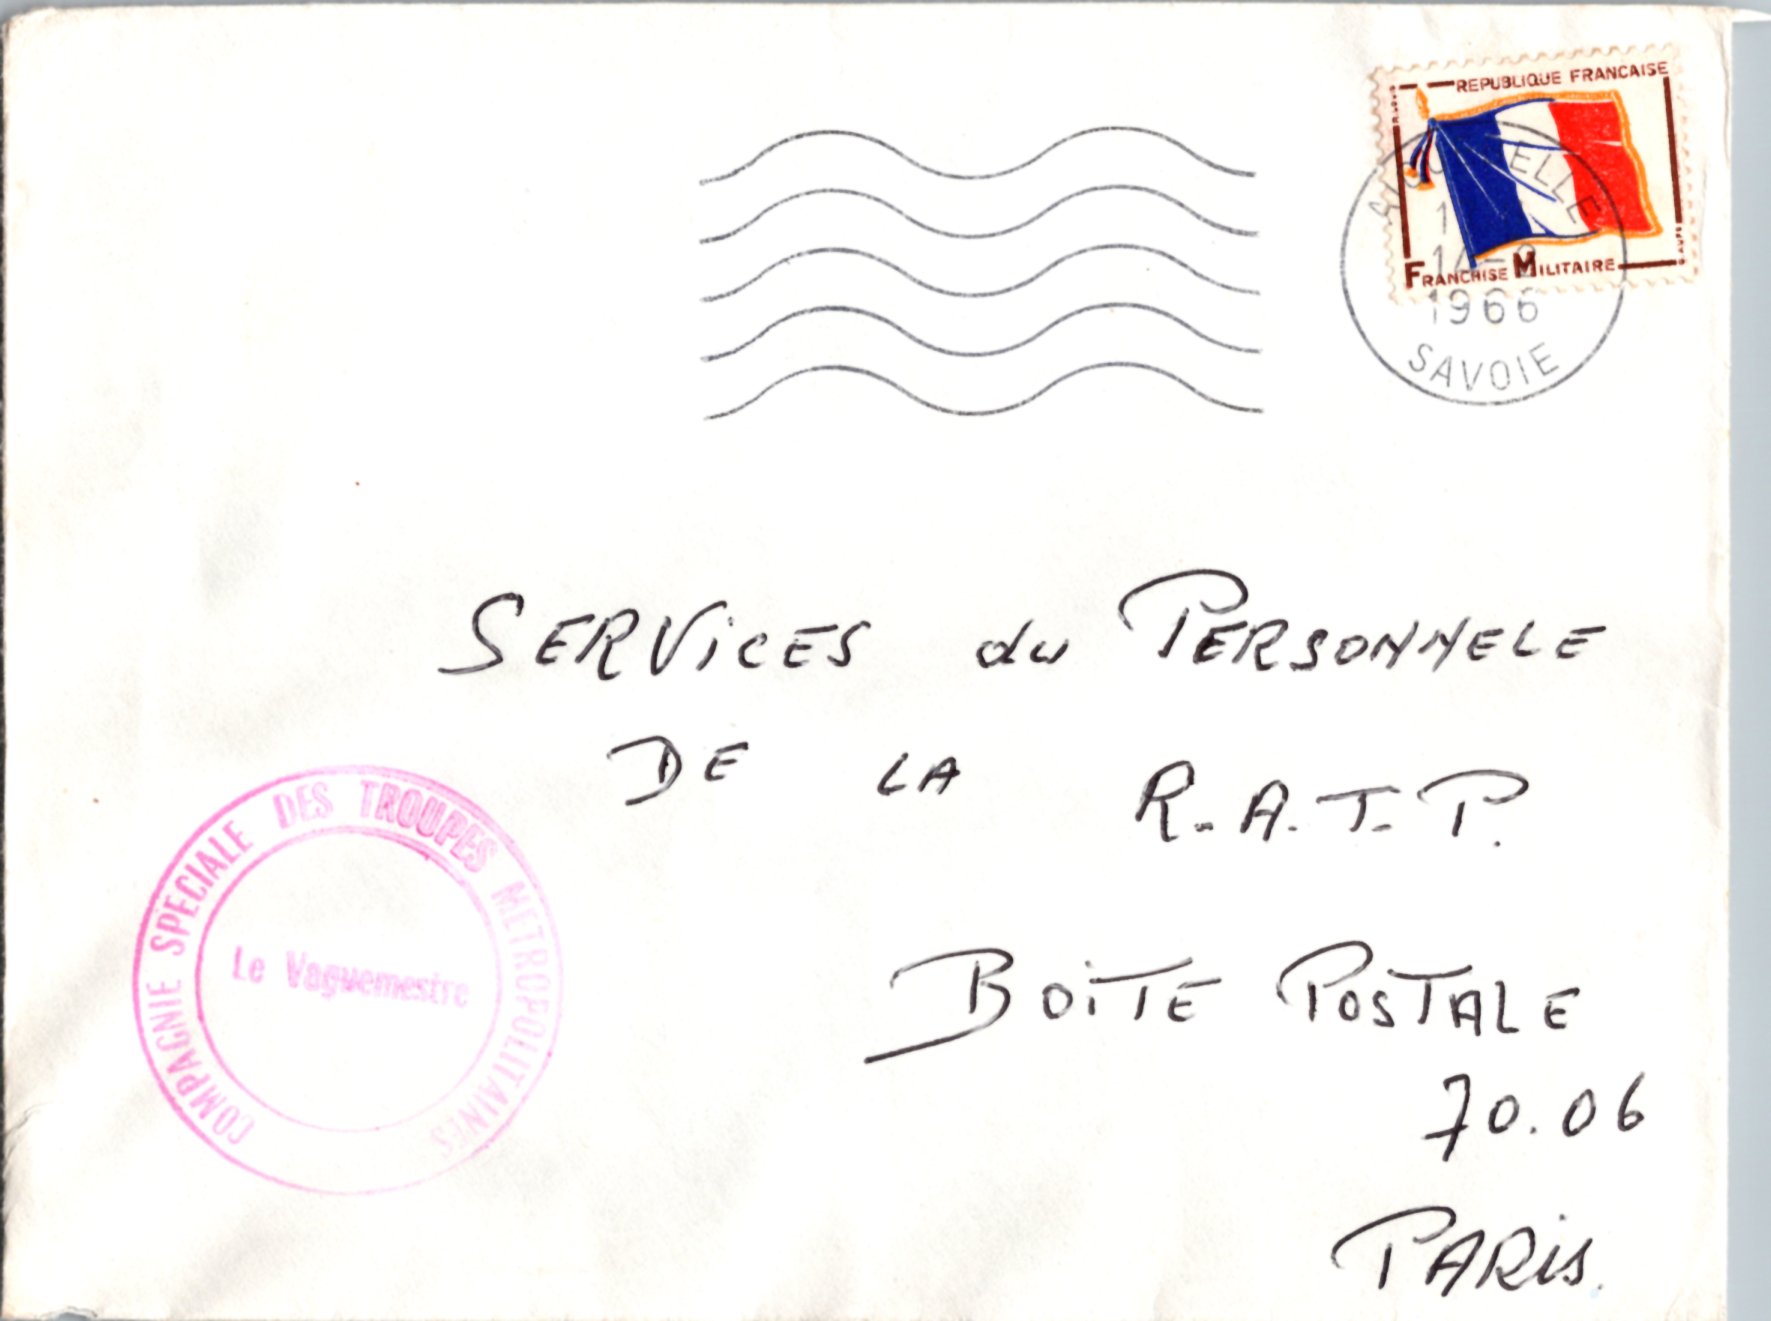 REPUBLIQUE FRANCAISE
FRANCHISE MILITAIRE
1966
SAVOIE
SERVICES du PERSONNELE
DE LA R.A.T.P.
BOITE POSTALE
70.06
PARIS.
COMPAGNIE SPECIALE DES TROUPES METROPOLITAINES
Le Vaguemestre